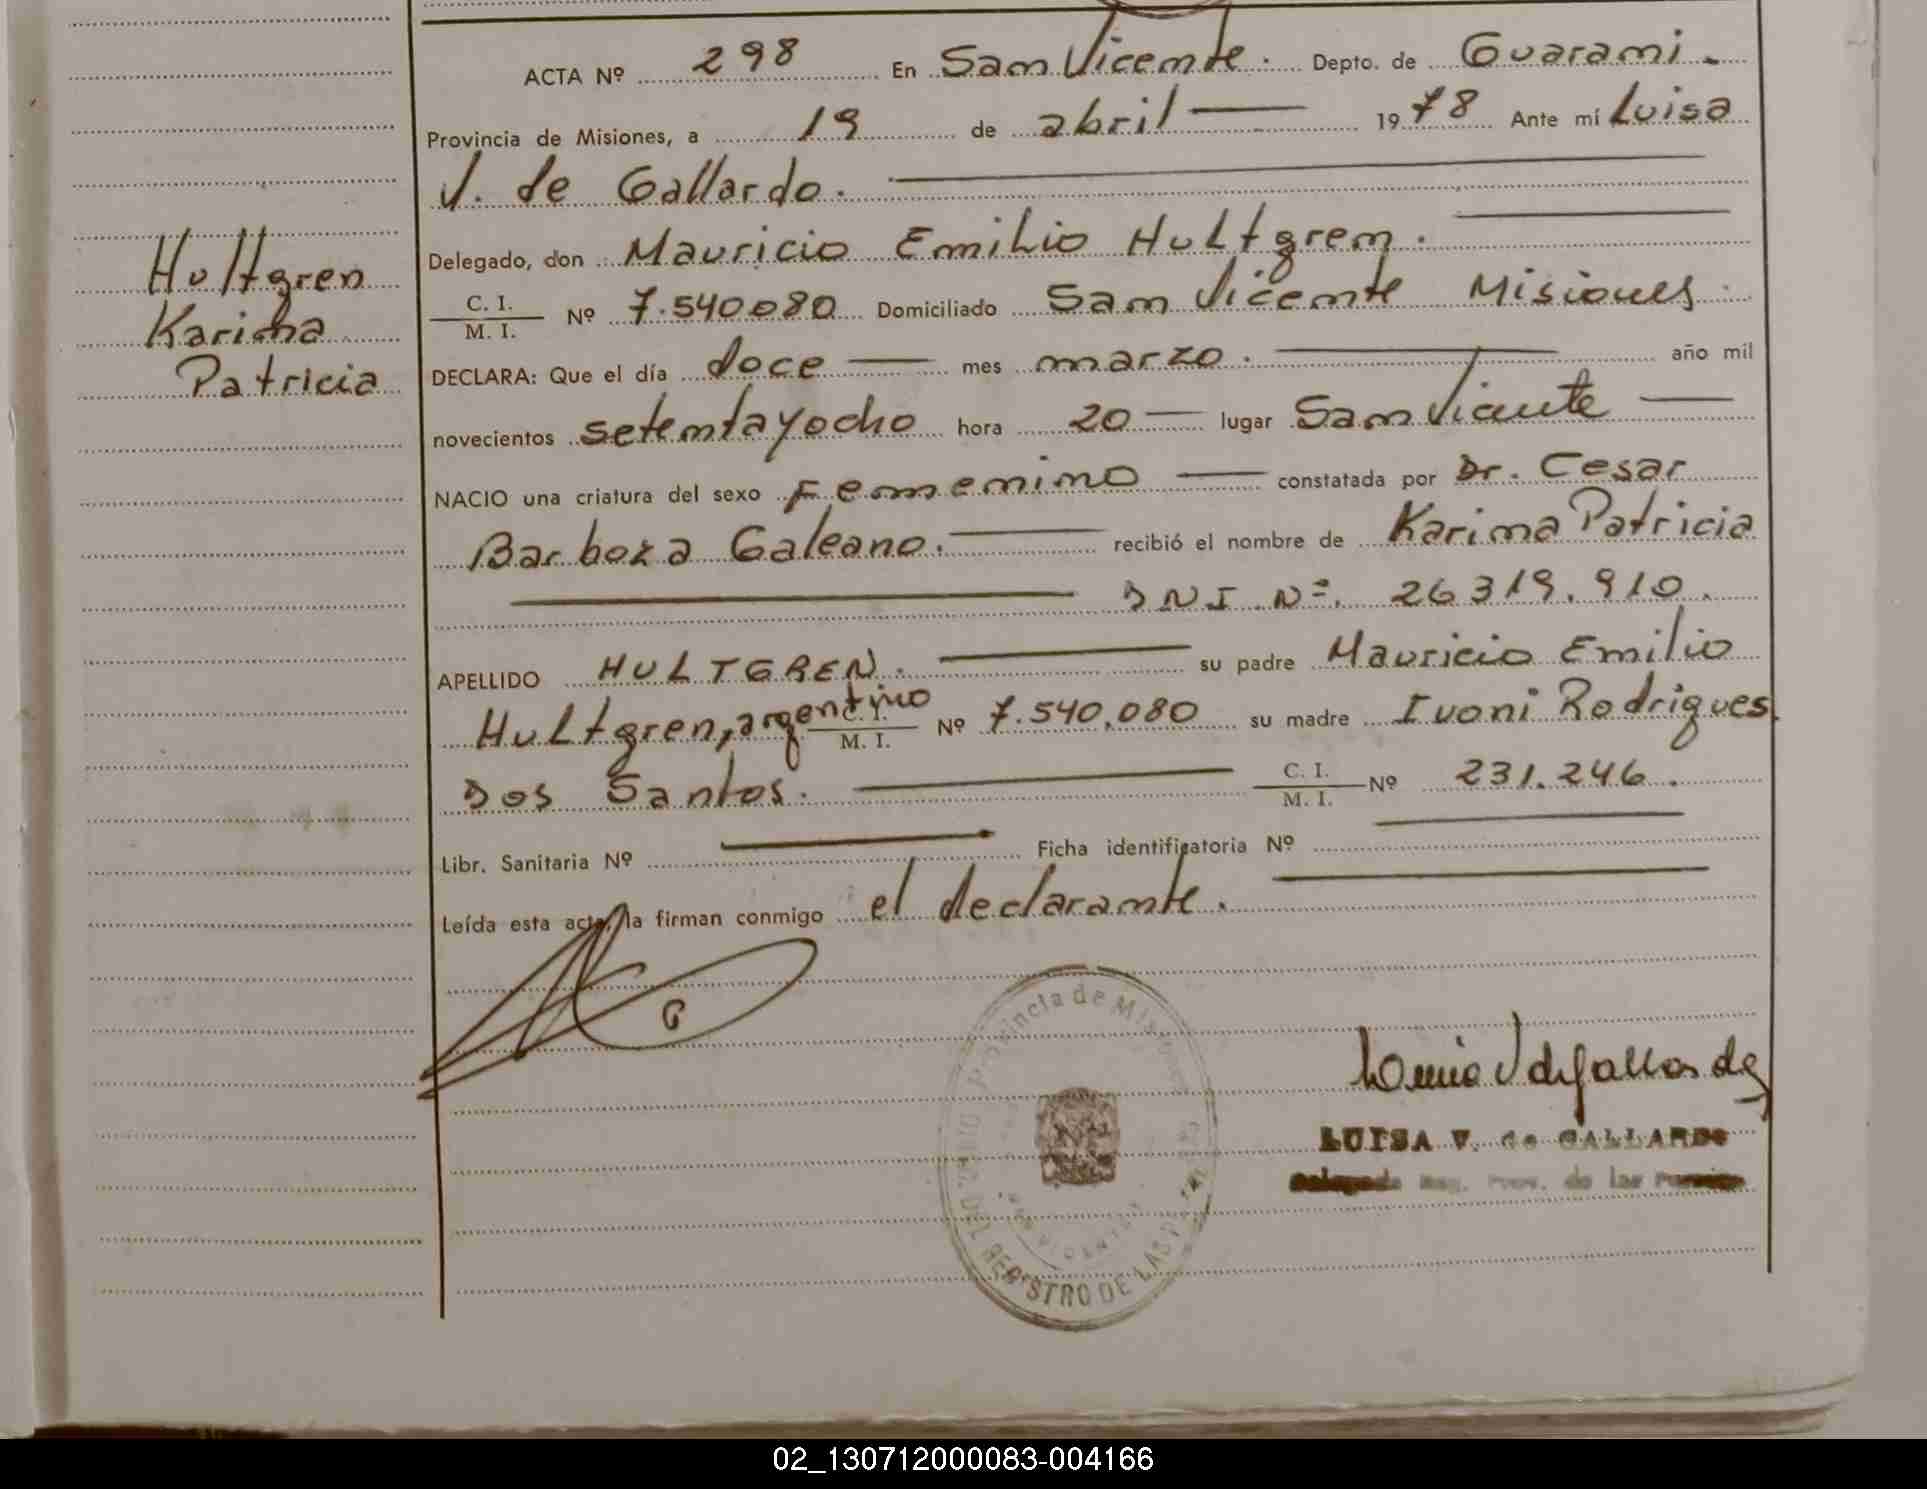 ACTA Nº 298 En San Vicente. Depto. de Guarani.
Provincia de Misiones, a 19 de abril 1978 Ante mí Luisa
V. de Gallardo.
Delegado, don Mauricio Emilio Hultgren.
C. I.
M. I. Nº 7.540080 Domiciliado San Vicente Misiones
DECLARA: Que el día doce mes marzo. año mil
novecientos setenta y ocho hora 20 lugar San Vicente
NACIO una criatura del sexo Femenino constatada por Dr. Cesar
Barboza Galeano. recibió el nombre de Karina Patricia
DNI Nº. 26319.910.
APELLIDO HULTGREN. su padre Mauricio Emilio
Hultgren, argentino C. I.
M. I. Nº 7.540.080 su madre Ivoni Rodrigues
Dos Santos. C. I.
M. I. Nº 231.246.
Libr. Sanitaria Nº Ficha identificatoria Nº
Leída esta acta, la firman conmigo el declarante.
Hultgren
Karina
Patricia
Provincia de Misiones
REGISTRO DE LAS
LUISA V. de GALLARDO
02_130712000083-004166